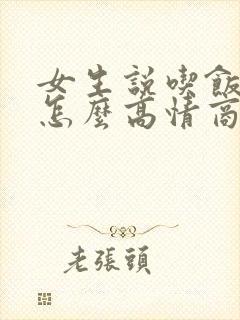 女生說喫飯
怎麼高情商
老張頭